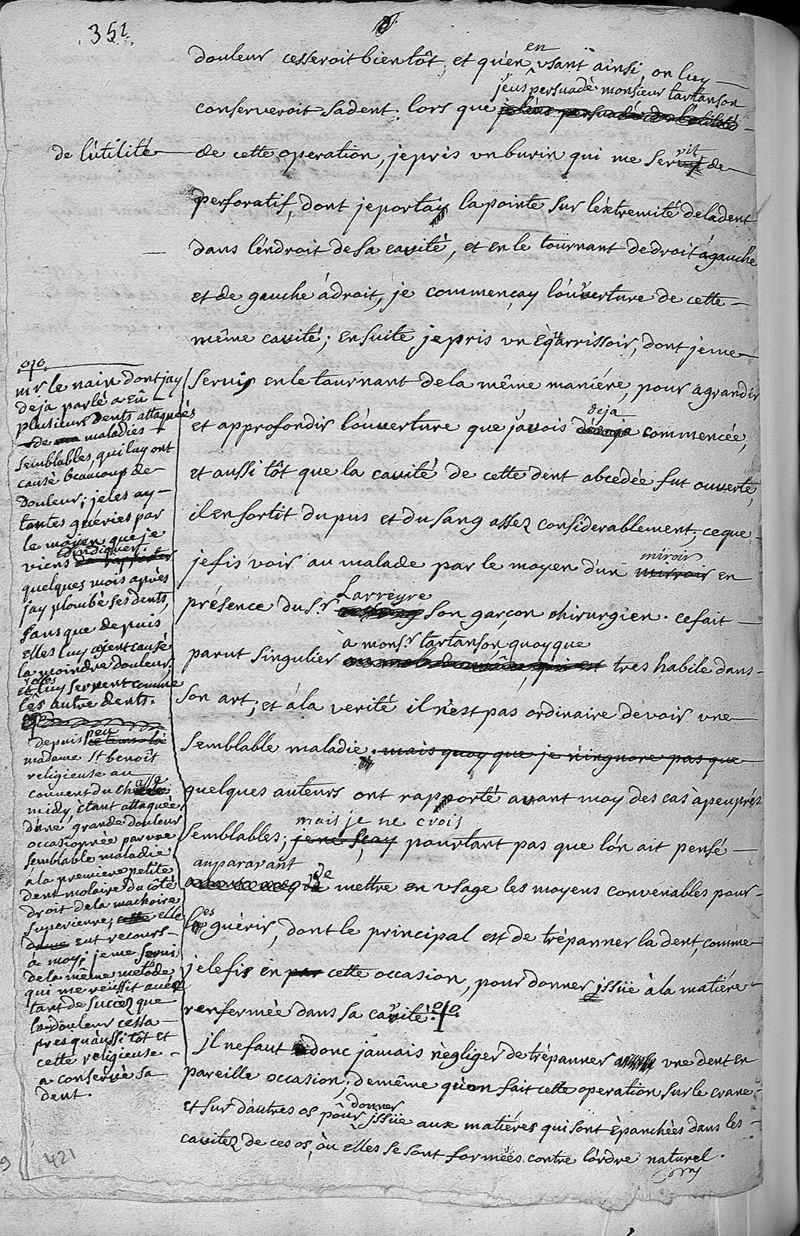 352
douleur cesseroit bientôt; et qu'en en usant ainsi, on luy
j'eus persuadé monsieur tartanson
conserveroit sa dent: lors que
de l'utilité
de cette operation, je pris un burin qui me servit de
perforatif, dont je portay la pointe sur l'éxtremité de la dent
dans l'éndroit de sa cavité, et en le tournant de droit à gauche
et de gauche à droit, je commençay l'ouverture de cette
même cavité; ensuite je pris un équarrissoir, dont je me
servis en le tournant de la même maniére, pour agrandir
deja
et approfondir l'ouverture que j'avois commencée,
et aussi tôt que la cavité de cette dent abcedée fut ouverte,
il en sortit du pus et du sang assez considerablement; ce que
miroir
je fis voir au malade par le moyen d'un miroir en
Larreyre
présence du Sr. son garçon chirurgien. ce fait
à monsr. tartanson quoyque
parut singulier tres habile dans
son art; et à la verité il n'est pas ordinaire de voir une
semblable maladie. mais quoy que je n'ingnore pas que
quelques auteurs ont rapporté avant moy des cas à peu prés
mais je ne crois
semblables; je ne sçay pourtant pas que l'on ait pensé
auparavant
de mettre en usage les moyens convenables pour
les guérir, dont le principal est de trépanner la dent, comme
je le fis en par cette occasion, pour donner issüe à la matiére
renfermée dans sa cavité.
il ne faut donc jamais négliger de trépanner une dent en
pareille occasion; de même qu'on fait cette operation sur le crane
donner
et sur d'autres os pour issüe aux matiéres qui sont épanchées dans les
cavitez de ces os, où elles se sont formées contre l'ordre naturel.
mr. le nain dont jay
deja parlé a eû
plusieurs dents attaquées
de maladies
semblables, qui luy ont
causé beaucoup de
douleur; je les ay
toutes guéries par
le moyen que je
viens d'indiquer.
quelques mois aprés
j'ay plombé ses dents,
sans que depuis
elles luy ayent causé
la moindre douleur,
et luy servent comme
les autre dents.
depuis peu
madame St benoît
religieuse au
couvent du
midy, étant attaquée
d'une grande douleur
occasionnée par une
semblable maladie
à la premiere petite
dent molaire du côté
droit de la machoire
superieure; elle
eut recours
à moy; je me servis
de la même metode
qui me réussit avec
tant de succez que
la douleur cessa
presqu'aussi tôt et
cette religieuse
a conservé sa
dent.
421